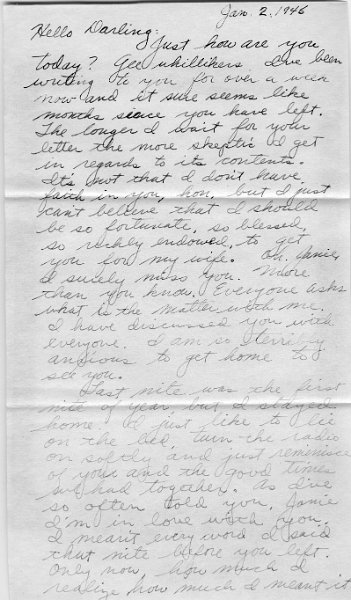 Jan. 2, 1946
Hello Darling:
Just how are you
today? Gee whillikers I've been
writing to you for over a week
now and it sure seems like
months since you have left.
The longer I wait for your
letter the more skeptic I get
in regards to its contents.
It's not that I don't have
faith in you, hon, but I just
can't believe that I should
be so fortunate, so blessed,
so richly endowed, to get
you for my wife. Oh, Janie,
I surely miss you. More
than you know. Everyone asks
what is the matter with me.
I have discussed you with
everyone. I am so terribly
anxious to get home to
see you.
Last nite was the first
nite of year but I stayed
home. I just like to lie
on the bed, turn the radio
on softly and just reminisce
of you and the good times
we had together. As I've
so often told you, Janie
I'm in love with you.
I meant every word I said
that nite before you left.
Only now how much I
realize how much I meant it